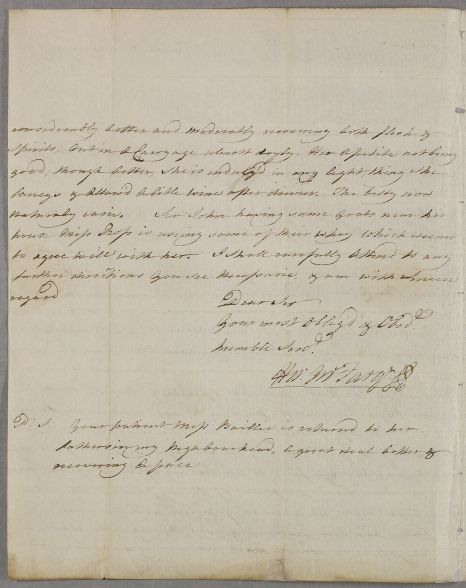 considerably better and moderately recovering both flesh &
spirits, but in a language almost dayly. Her Apetite not being
good, though better, she is indulg'd in any light thing she
fancys & Allow'd a little wine after dinner. The belly now
naturaly easie. Sir John having some Goats near his
house Miss Ross is using some of their whey which seems
to agree well with her. I shall carefully attend to any
further directions you see necessarie, & am with sincere
regard
Dear Sir
Your most Oblig'd & Obedt
humble Servt
P: S. Your patient Miss Baillie is returned to her
fathers in my Neighbourhead, a great deal better &
recovering a pace